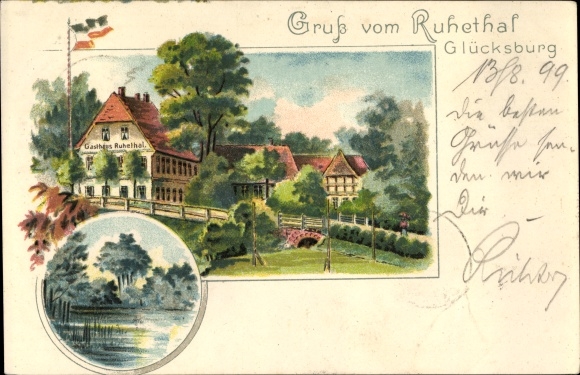 Gruß vom Ruhethal
Glücksburg
Gasthaus Ruhethal.
13/8. 99.
Die besten
Grüsse sen-
den wir
Dir